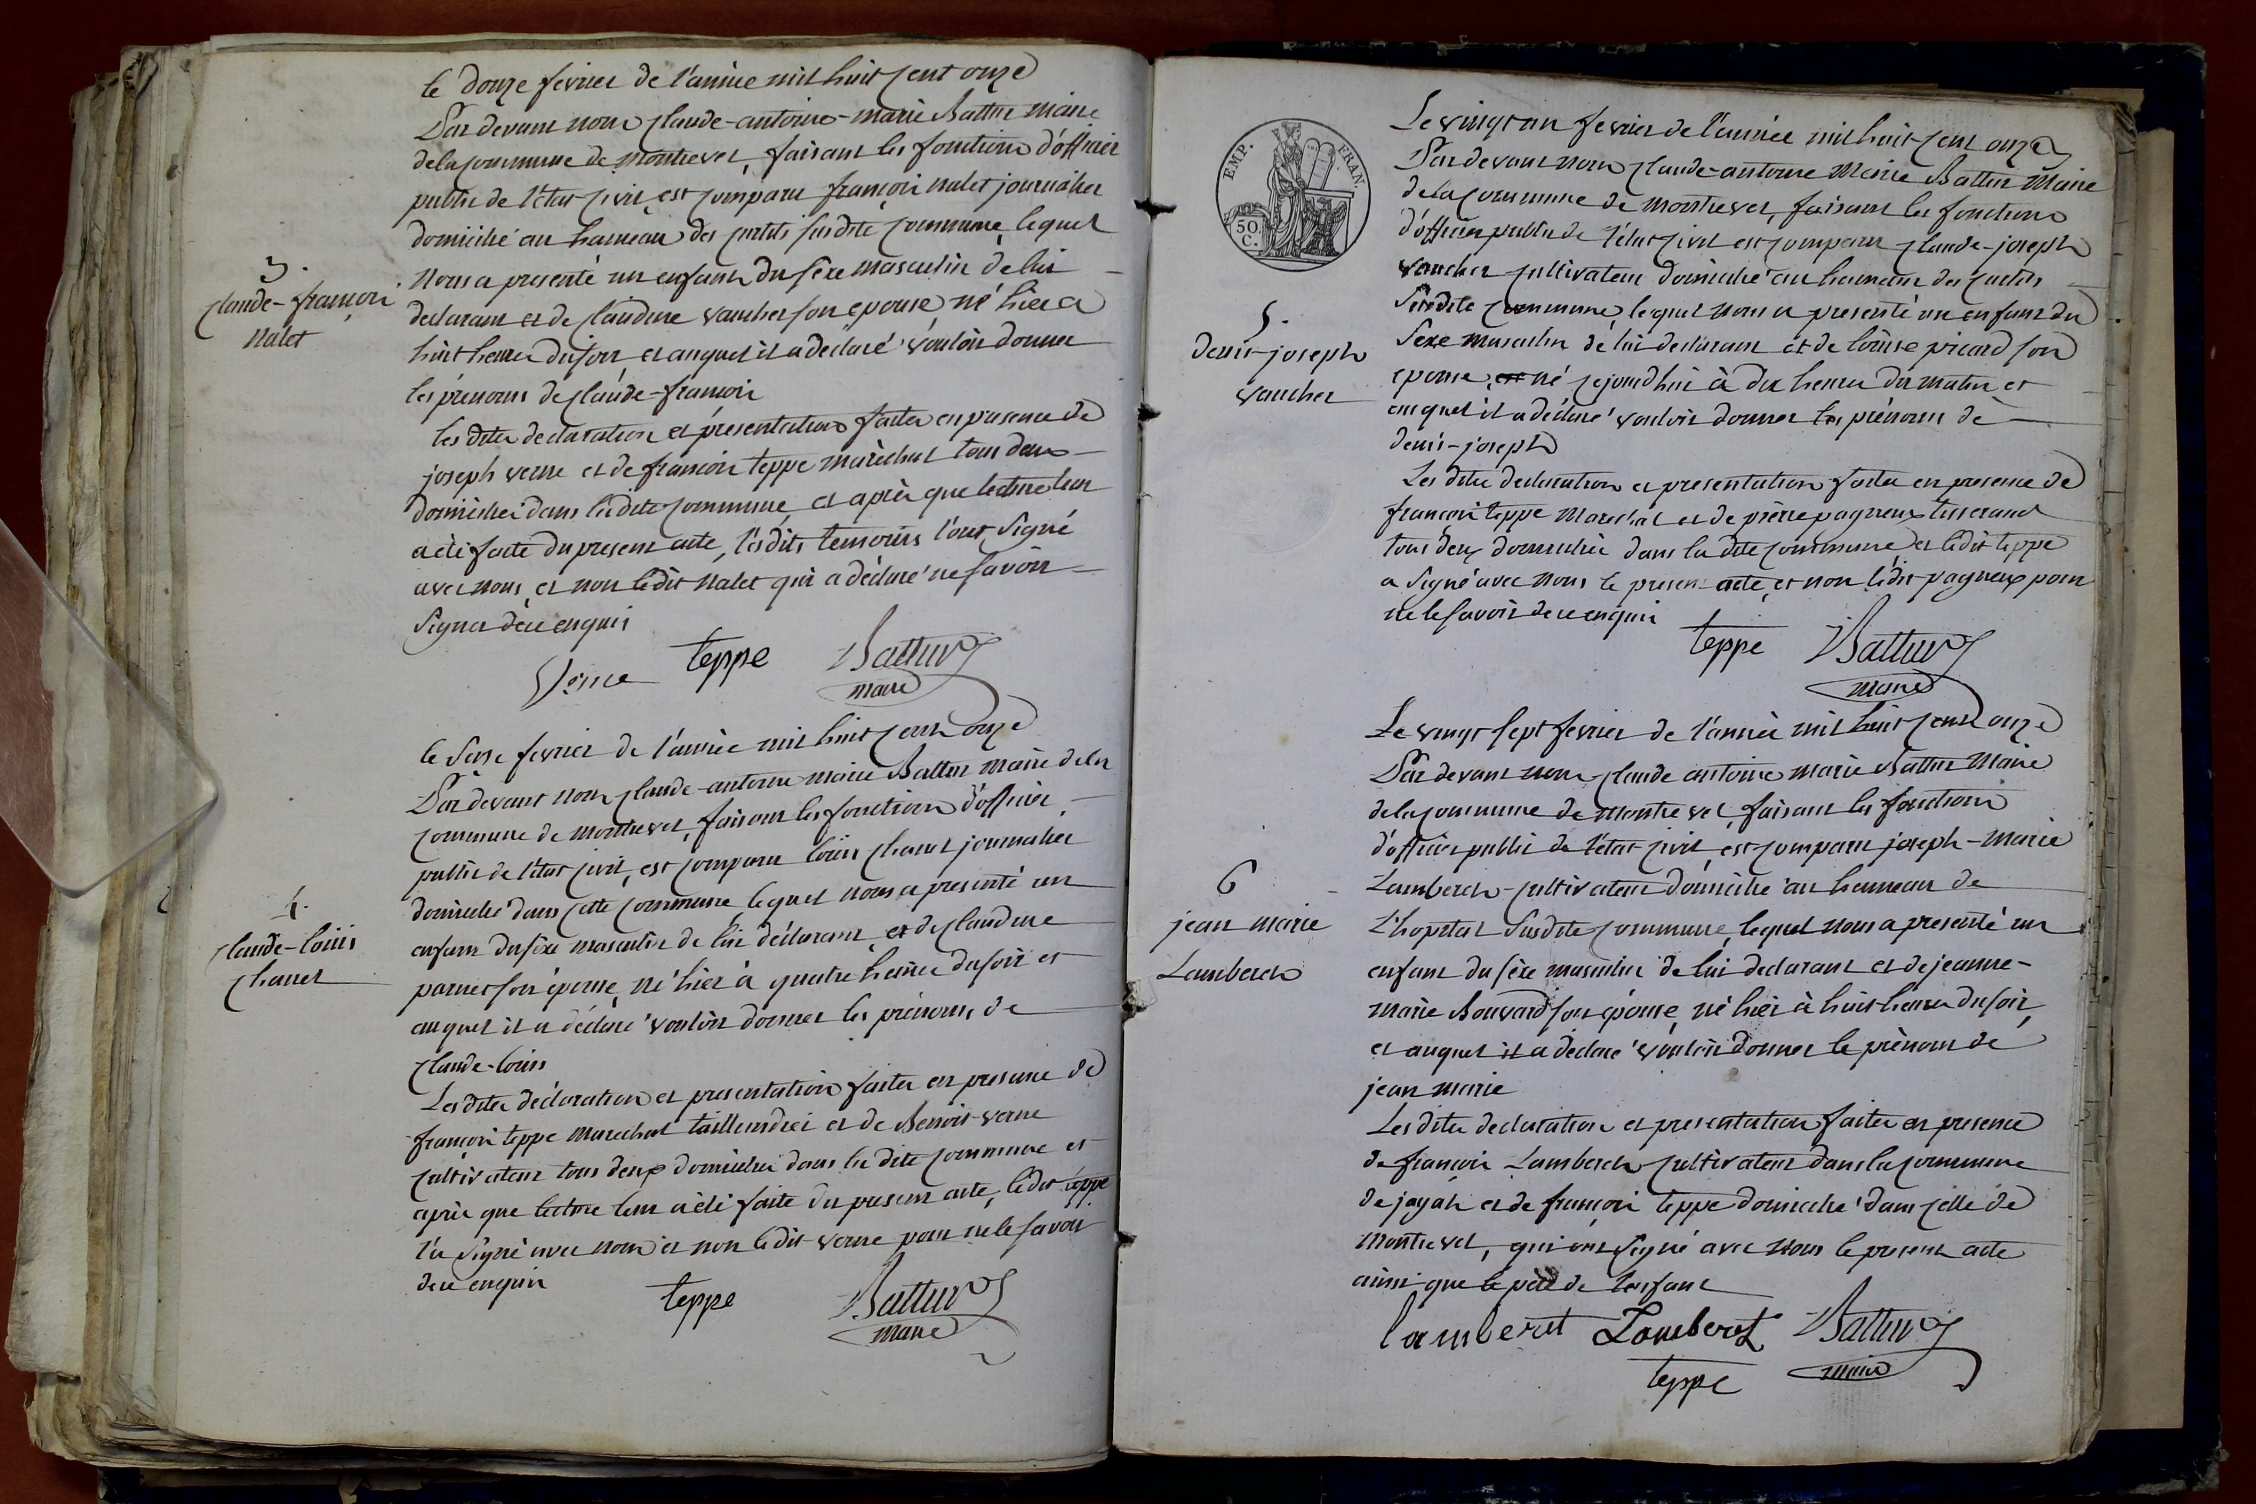 le douze fevrier de l'année mil huit cent onze
Par devant nous claude-antoine-marie Battur maire
de la commune de montrevel, faisant les fonctions d'officier
public de l'état civil, est comparu françois nalet journalier
domicilié au hameau des curtits susdite commune, lequel
nous a presenté un enfant du sexe masculin de lui
declarant et de claudine vaucher son epouse, né hier a
huit heures du soir et auquel il a declaré vouloir donner
les prenoms de claude-françois
les dites declaration et présentation faites en presence de
joseph verne et de françois teppe maréchal tous deux
domiciliés dans la dite commune, et après que lecture leur
a été faite du present acte, lesdits temoins l'ont signé
avec nous, et non ledit nalet qui a déclaré ne savoir
signer de ce enquis
Verne teppe Battur
maire
3.
claude-françois
nalet
le seize fevrier de l'année mil huit cent onze
Par devant nous claude-antoine marie Battur maire de la
commune de montrevel, faisant les fonctions d'officier
public de l'état civil, est comparu louis chanel journalier
domicilié dans cette commune lequel nous a presenté un
enfant du sexe masculin de lui déclarant et de claudine
parnet son épouse, né hier à quatre heures du soir et
auquel il a déclaré vouloir donner les prénoms de
claude-louis
Les dites déclaration et presentation faites en presence de
françois teppe marechal taillandier et de Benoit verne
cultivateur tous deux domiciliés dans la dite commune et
après que lecture leur a été faite du present acte, ledit teppe
l'a signé avec nous et non ledit verne pour ne le savoir
de ce enquis
teppe Battur
maire
4.
claude-louis
chanel
EMP. FRAN.
50.
C.
Le vingt un fevrier de l'année mil huit cent onze
Par devant nous claude-antoine Marie Battur Maire
de la commune de montrevel, faisant les fonctions
d'officier public de l'état civil est comparu claude-joseph
vaucher cultivateur domicilié au hameau des curtits
susdite commune, lequel nous a presenté un enfant du
sexe masculin de lui declarant et de louise picard son
epouse, est né cejourd'hui à dix heures du matin et
auquel il a déclaré vouloir donner les prénoms de
denis-joseph
Les dites declaration et presentation faites en presence de
françois teppe Marechal et de pierre pagneux tisserand
tous deux domiciliés dans la dite commune et ledit teppe
a signé avec nous le present acte, et non ledit pagneux pour
ne le savoir de ce enquis
teppe Battur
maire
5.
denis-joseph
vaucher
Le vingt sept fevrier de l'année mil huit cent onze
Par devant nous claude antoine marie Battur Maire
de la commune de montrevel faisant les fonctions
d'officier public de l'état civil, est comparu joseph-marie
Lamberet cultivateur domicilié au hameau de
L'hopital susdite commune, lequel nous a presenté un
enfant du sexe masculin de lui declarant et de jeanne-
marie Bouvard son épouse, né hier à huit heures du soir,
et auquel il a déclaré vouloir donner le prénom de
jean marie
Les dites declaration et presentation faites en presence
de françois Lamberet cultivateur dans la commune
de jayat et de françois teppe domicilié dans celle de
montrevel, qui ont signé avec nous le present acte
ainsi que le père de l'enfant
lamberet Lamberet Battur
teppe maire
6
jean marie
Lamberet